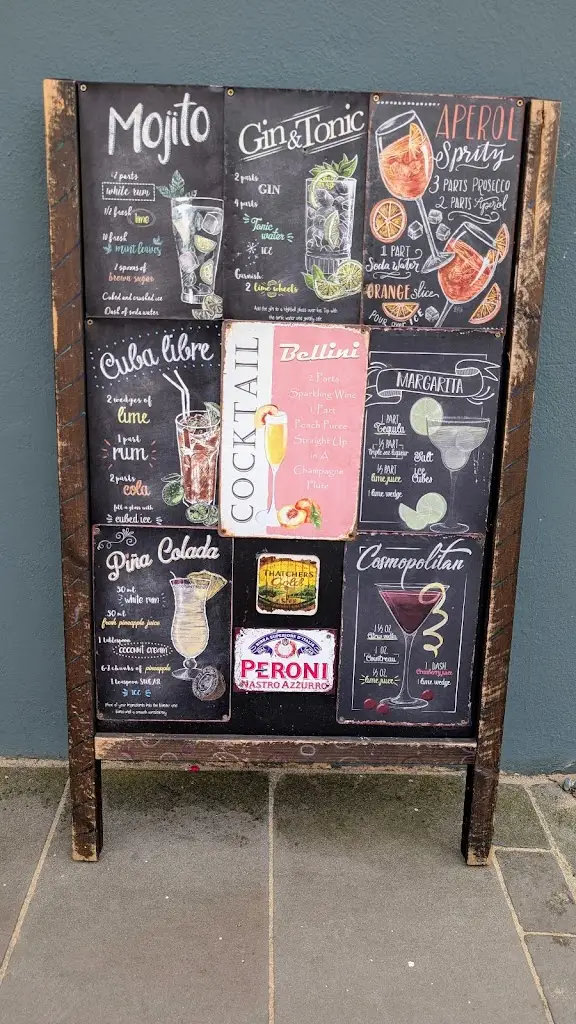 Mojito
2 parts
white rum
1/2 fresh
lime
10 fresh
mint leaves
2 spoons of
brown sugar
Cubed and crushed ice
Dash of soda water
Gin & Tonic
2 parts
GIN
4 parts
Tonic
water
ICE
Garnish:
2 lime wheels
Add the gin to a highball glass over ice. Top with
the tonic water and gently stir.
APEROL
Spritz
3 PARTS PROSECCO
2 PARTS Aperol
1 PART
Soda Water
ORANGE slice
Cuba libre
2 wedges of
lime
1 part
rum
2 parts
cola
fill a glass with
cubed ice
COCKTAIL
Bellini
2 Parts
Sparkling Wine
1 Part
Peach Puree
Straight Up
in A
Champagne
Flute
MARGARITA
1 PART
Tequila
1/2 PART
triple sec liqueur
1/2 PART
lime juice
1 lime wedge
Salt
ice
Cubes
Piña Colada
50 ml
white rum
50 ml
fresh pineapple juice
coconut cream
6-7 chunks of pineapple
1 teaspoon SUGAR
ICE
THATCHERS
Gold
PERONI
NASTRO AZZURRO
Cosmopolitan
1 1/2 OZ.
1 OZ.
Cointreau
1/2 OZ.
lime juice
1 DASH
Cranberry juice
lime wedge